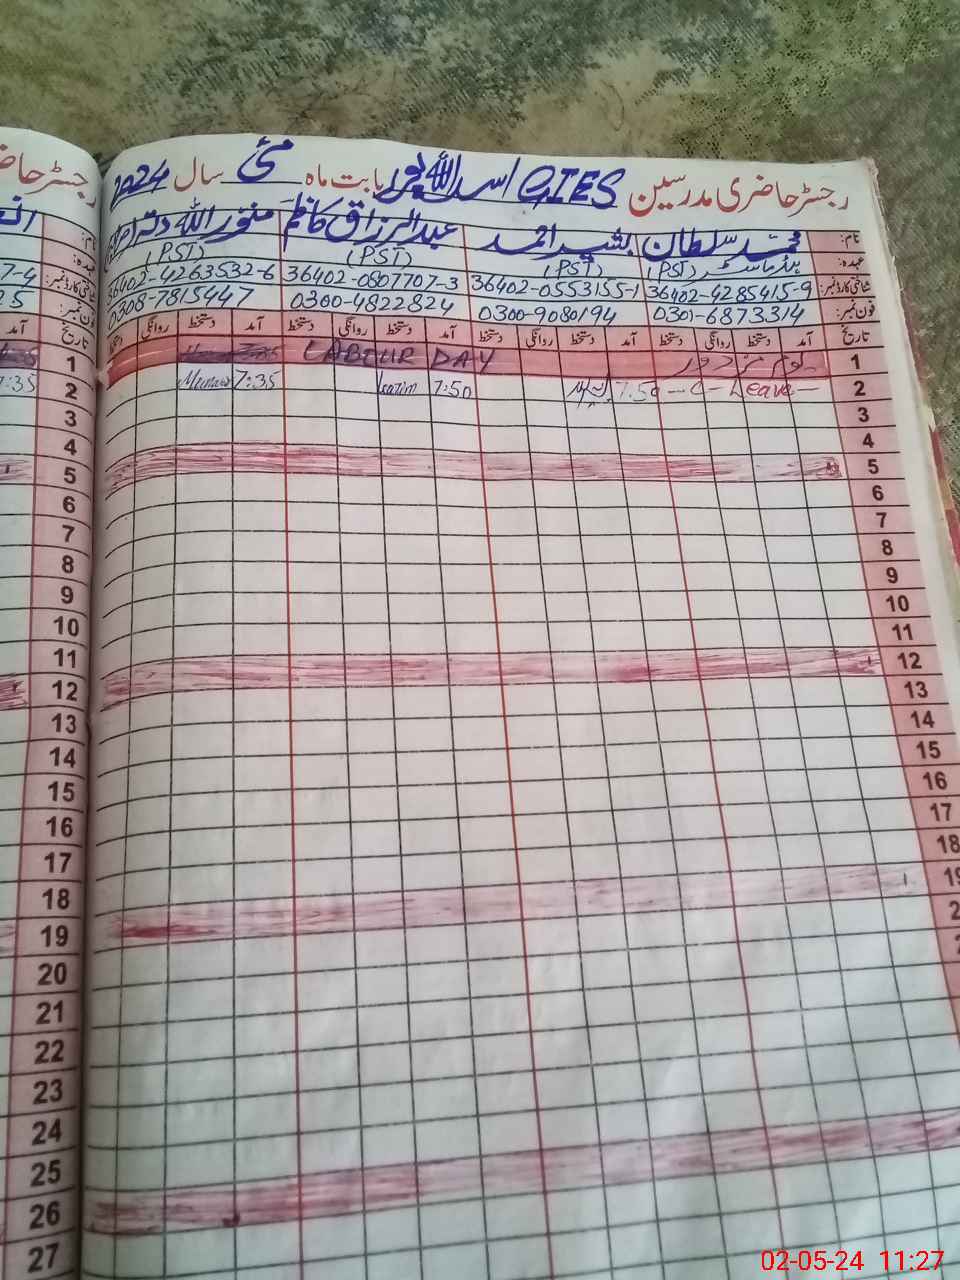 رجسٹر حاضری مدرسین GIES اسد اللہ پور بابت ماہ مئی سال 2024
نام: محمد سلطان بشیر احمد عبدالرزاق کاظم منور اللہ دتہ
عہدہ: ہیڈ ماسٹر (PST) (PST) (PST) (PST)
شناختی کارڈ نمبر: 36402-4285415-9 36402-0553155-1 36402-0807707-3 36402-4263532-6
فون نمبر: 0301-6873314 0300-9080194 0300-4822824 0308-7815447
تاریخ آمد دستخط روانگی دستخط آمد دستخط روانگی دستخط آمد دستخط روانگی دستخط آمد دستخط روانگی دستخط
1 یوم مزدور LABOUR DAY
2 — C — Leave — 7:50 7:50 Kazim 7:35 Munawar
3
4
5
6
7
8
9
10
11
12
13
14
15
16
17
18
19
رجسٹر حاضری
7-4
آمد تاریخ
1
7:35 2
3
4
5
6
7
8
9
10
11
12
13
14
15
16
17
18
19
20
21
22
23
24
25
26
27
02-05-24 11:27